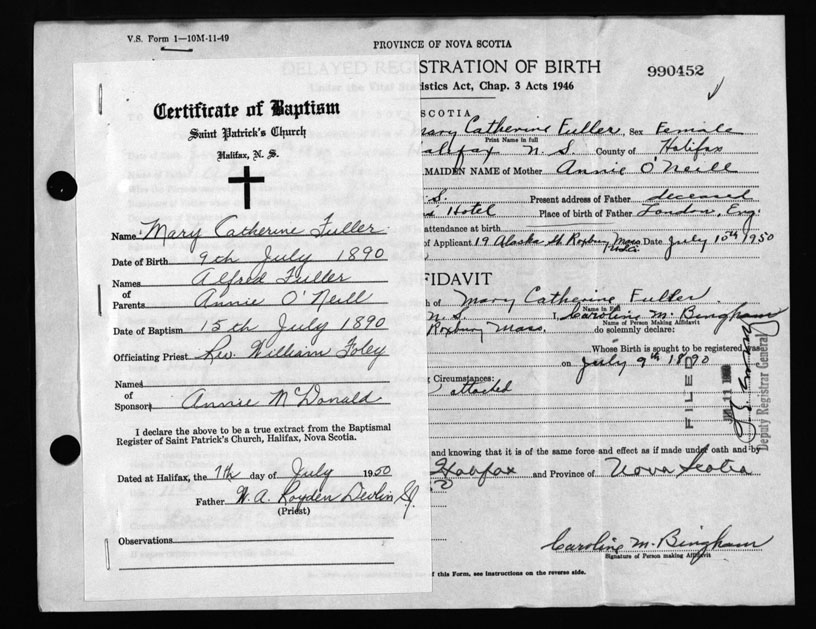 V.S. Form 1—10M-11-49
PROVINCE OF NOVA SCOTIA
DELAYED REGISTRATION OF BIRTH
990452
istics Act, Chap. 3 Acts 1946
Certificate of Baptism
Saint Patrick's Church
Halifax, N. S.
Name Mary Catherine Fuller
Date of Birth 9th July 1890
Names of Parents Alfred Fuller
Annie O'Neill
Date of Baptism 15th July 1890
Officiating Priest Rev. William Foley
Names of Sponsors
Annie McDonald
I declare the above to be a true extract from the Baptismal
Register of Saint Patrick's Church, Halifax, Nova Scotia.
Dated at Halifax, the 7th day of July 1950
Father W. A. Royden Devlin S.J.
(Priest)
Observations
SCOTIA
Mary Catherine Fuller, Sex Female
Print Name in full
Halifax N. S. County of Halifax
MAIDEN NAME of Mother Annie O'Neill
S. Present address of Father deceased
Hotel Place of birth of Father London, Eng.
attendance at birth
of Applicant 19 Alaska St. Roxbury Mass Date July 10th 1950
FIDAVIT
h of Mary Catherine Fuller
Name in Full
N. S. I, Caroline M. Bingham
Name of Person Making Affidavit
Roxbury Mass. do solemnly declare:
Whose Birth is sought to be registered was
on July 9th 1890
g Circumstances:
attached
FILED
Deputy Registrar General
and knowing that it is of the same force and effect as if made under oath and by
Halifax and Province of Nova Scotia
Caroline M. Bingham
Signature of Person making Affidavit
f this Form, see instructions on the reverse side.